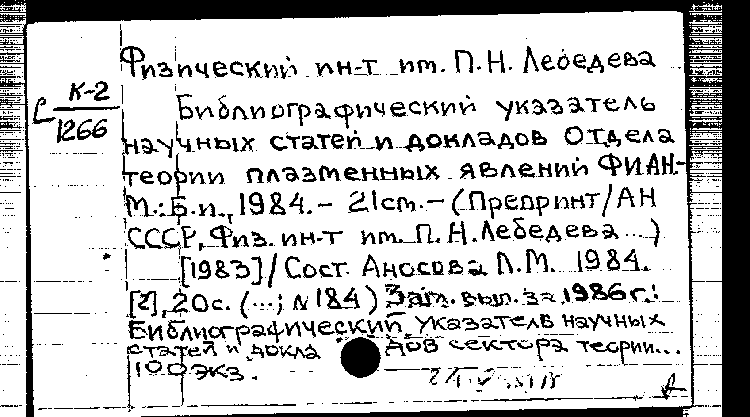 Физический ин-т им. П.Н. Лебедева
К-2
1266
Библиографический указатель
научных статей и докладов Отдела
теории плазменных явлений ФИАН.-
М.: Б.и., 1984.- 21 ст.- (Препринт/АН
СССР, Физ. ин-т им. П.Н. Лебедева ...)
[1983] / Сост. Аносова Л.М. 1984.
[2], 20с. (...; N 184) Загл. вып. за 1986 г.:
Библиографический указатель научных
статей и докладов сектора теории...
100 экз.